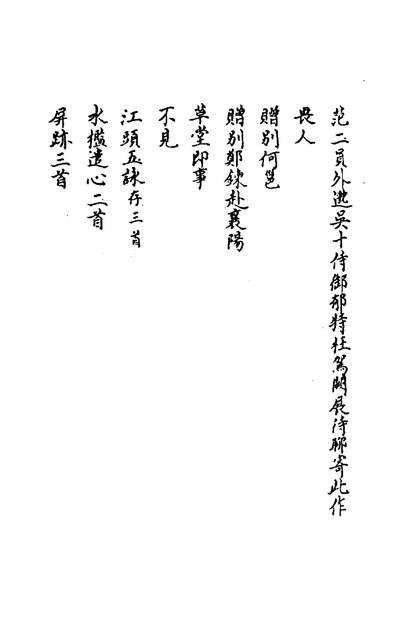 范二員外邈吳十侍御郁特枉駕闕展待聊寄此作
畏人
贈別何邕
贈別鄭鍊赴襄陽
草堂即事
不見
江頭五詠存三首
水檻遣心二首
屏跡三首